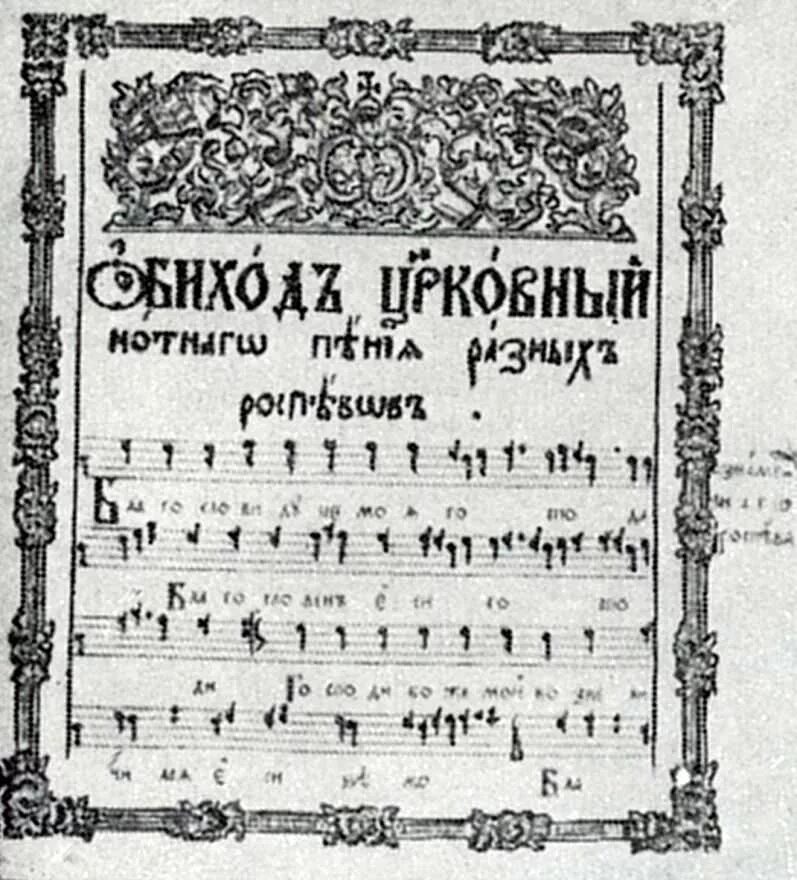 Ѻ҆БИХО́ДЪ ЦР҃КО́ВНЫЙ
но́тнагѡ пѣ́нїѧ ра́зныхъ
роспѣ́вѡвъ .
Бла го сло ви дꙋ ше мо ѧ го спо да
Бла го сло венъ є҆ си го спо
ди Го спо ди бо же мой во зве ли
чи лсѧ є҆ си ѕѣ ло Бла
зна́мен
наго
роспѣ́ва